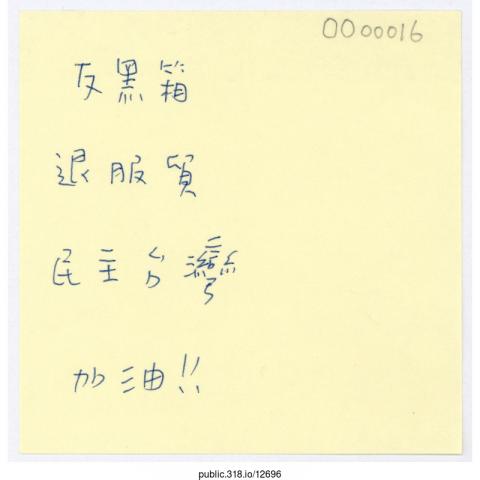 0000016
反黑箱
退服貿
民主台灣
加油!!
public.318.io/12696